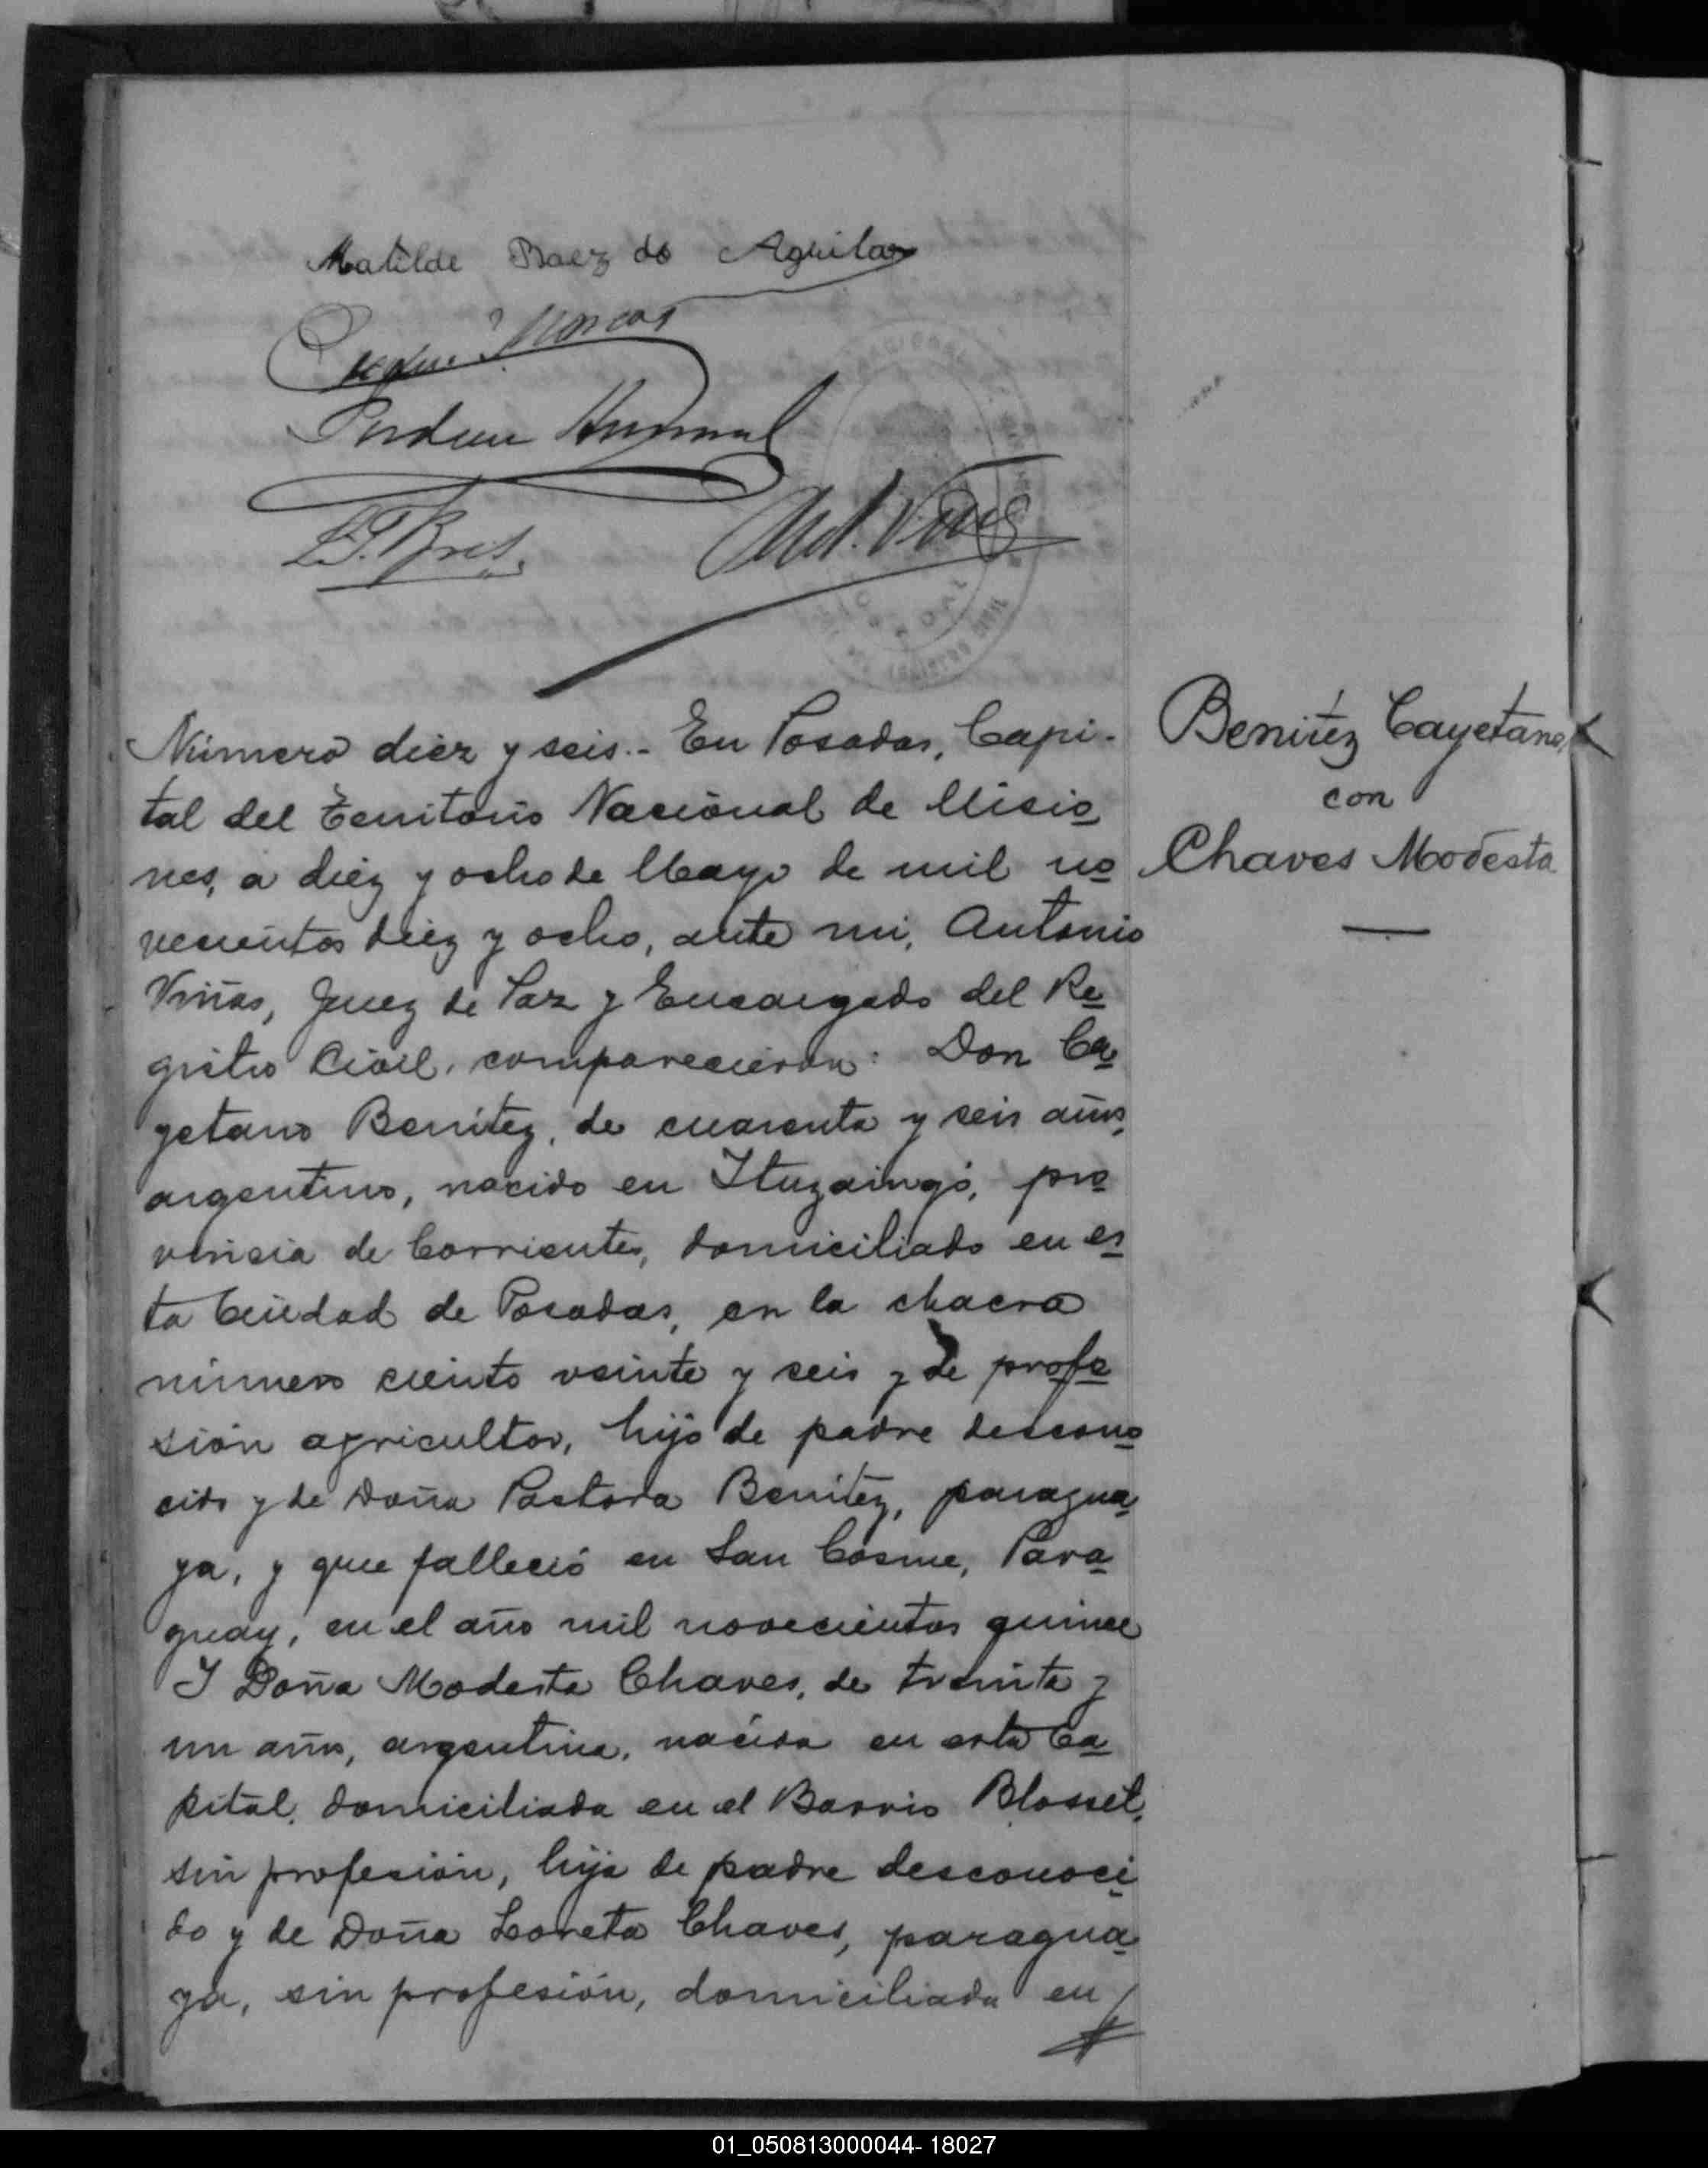 Matilde Baez de Aguilar
Número diez y seis.- En Posadas, Capi-
tal del Territorio Nacional de Misio
nes, a diez y ocho de Mayo de mil no
vecientos diez y ocho, ante mi, Antonio
Viñas, Juez de Paz y Encargado del Re
gistro Civil, comparecieron: Don Ca
yetano Benítez, de cuarenta y seis años,
argentino, nacido en Ituzaingó, pro
vincia de Corrientes, domiciliado en es
ta Ciudad de Posadas, en la chacra
número ciento veinte y seis y de profe
sión agricultor, hijo de padre descono
cido y de Doña Pastora Benítez, paragua
ya, y que falleció en San Cosme, Para
guay, en el año mil novecientos quince
Y Doña Modesta Chaves, de treinta y
un años, argentina, nacida en esta Ca
pital, domiciliada en el Barrio Blosset,
sin profesión, hija de padre desconoci
do y de Doña Loreta Chaves, paragua
ya, sin profesión, domiciliada en
Benítez Cayetano,
con
Chaves Modesta
01_050813000044- 18027